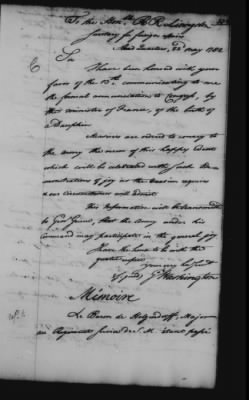 To the Honble R. R. Livingston
Secretary for foreign affairs
Head Quarters, 22d May 1782
Sir
I have been honored with your
favor of the 13th communicating to me
the formal annunciation to Congress, by
the minister of France, of the birth of
Dauphin
Measures are ordered to convey to
the Army the news of this happy event
which will be celebrated with such De-
monstrations of joy as the occasion requires
our circumstances will admit.
This information will be transmitted
to Genl Greene, that the Army under his
command may participate in the general joy
I have the honor to be with the
greatest respect
Your very hble Servt
signed Go Washington
Mémoire
Le Baron de Holzendorff, Major
au Regiment